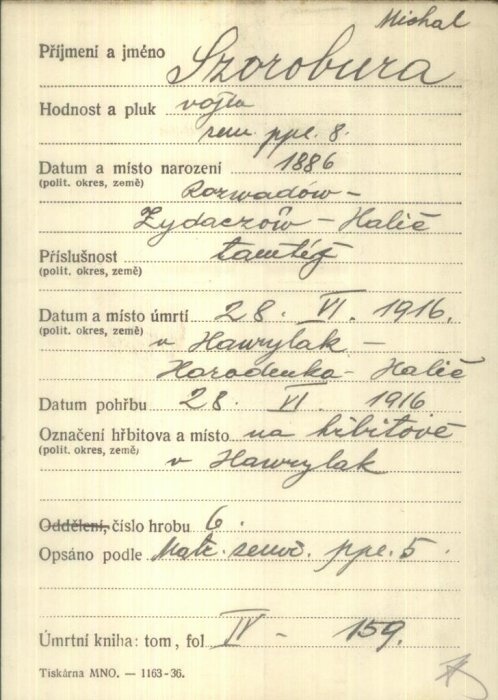 Michal
Příjmení a jméno Szorobura
Hodnost a pluk vojín
zem. ppl. 8.
Datum a místo narození 1886
(polit. okres, země) Rozwadów –
Zydaczów – Halič
Příslušnost tamtéž
(polit. okres, země)
Datum a místo úmrtí 28. VI. 1916.
(polit. okres, země) v Hawrylak –
Horodenka - Halič
Datum pohřbu 28. VI 1916
Označení hřbitova a místo na hřbitově
(polit. okres, země) v Hawrylak
Oddělení, číslo hrobu 6.
Opsáno podle Matr. zemř. ppl. 5.
Úmrtní kniha: tom, fol IV – 159.
Tiskárna MNO. — 1163-36.